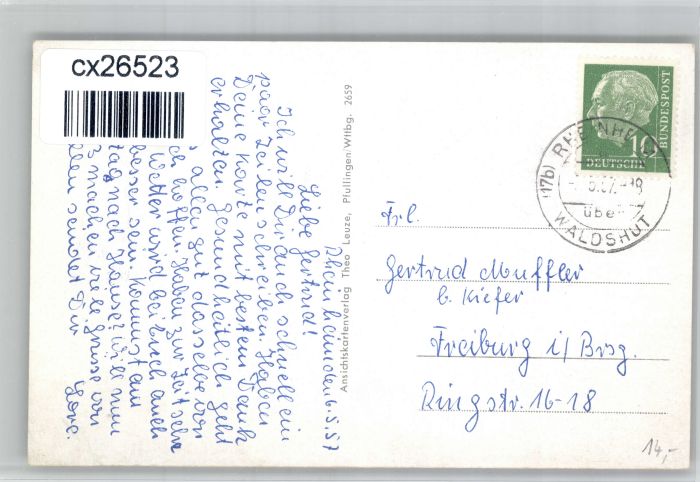 cx26523
Rheinheim, den 6.5.57
Liebe Gertrud!
Ich will Dir auch schnell ein
paar Zeilen schreiben. Haben
Deine Karte mit bestem Dank
erhalten. Gesundheitlich geht
alles gut dasselbe von
ich hoffen. Haben zur Zeit sehr
Wetter wird bei Euch auch
besser sein. Kommst am
tag nach Hause? Will nun
machen viele Grüsse von
sendet Dir
Lore.
Ansichtskartenverlag Theo Leuze, Pfullingen/Wttbg. 2659
10
DEUTSCHE
BUNDESPOST
(17b) RHEINHEIM
über
WALDSHUT
Frl.
Gertrud Muffler
b. Kiefer
Freiburg i/Brsg.
Ringstr. 16-18
14,-